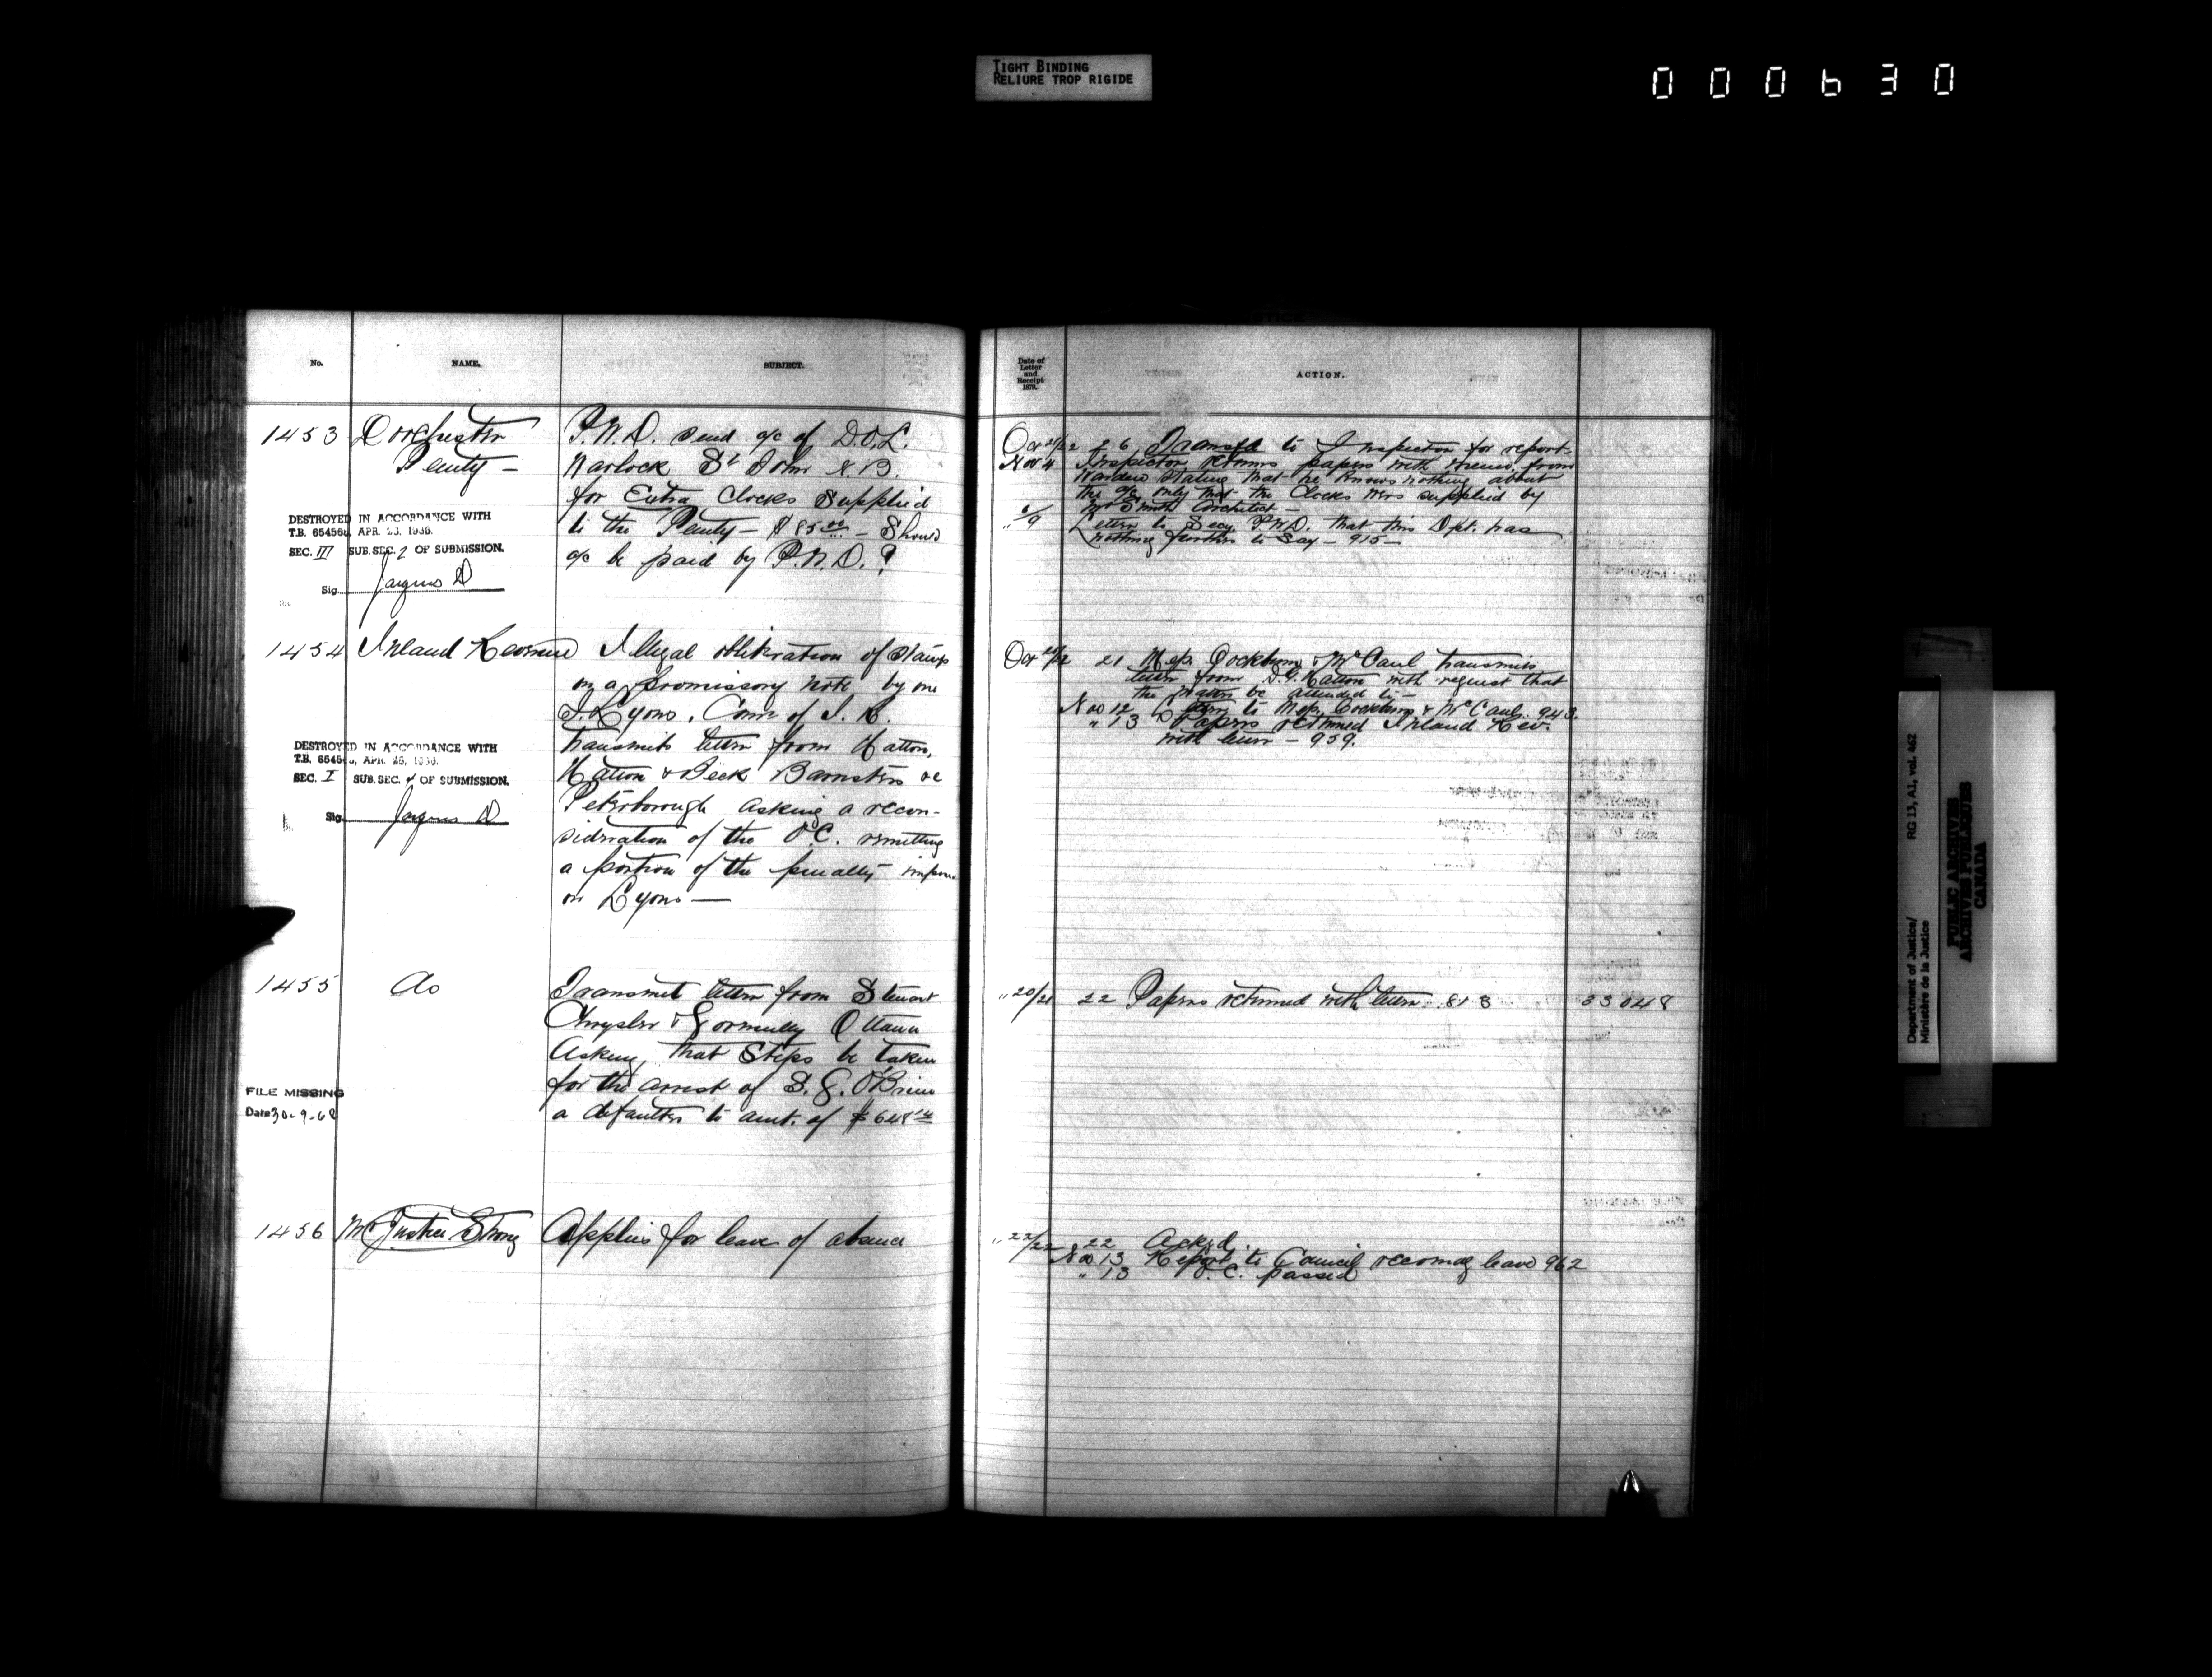 TIGHT BINDING
RELIURE TROP RIGIDE
000630
No. NAME. SUBJECT.
1453 Dorchester
Penty –
P.W.D. send a/c of D.O.L.
Warlock St John N.B.
for Extra Clocks Supplied
to the Penty – $85.00 – Should
a/c be paid by P.W.D.?
DESTROYED IN ACCORDANCE WITH
T.B. 654566, APR. 25, 1936.
SEC. III SUB. SEC. 2 OF SUBMISSION.
Sig.
1454 Inland Revenue
Illegal obliteration of Stamps
on a promissory note by one
J. Lyons. Comr of I. R.
transmits letter from Hatton,
Hatton & Beck Barristers &c
Peterborough asking a recon-
sideration of the O.C. remitting
a portion of the penalty
on Lyons —
DESTROYED IN ACCORDANCE WITH
T.B. 654566, APR. 25, 1936.
SEC. I SUB. SEC. 4 OF SUBMISSION.
Sig.
1455 do
Transmit letter from Stewart
Chrysler & Gormully Ottawa
Asking that Steps be taken
for the arrest of S. G. O'Brien
a defaulter to amt. of $648
FILE MISSING
Date 30-9-68
1456 Mr Justice Strong Applies for leave of absence
Date of
Letter
and
Receipt
1879.
ACTION.
Oct 21/22 26 Transfd to Inspector for report –
Nov 4 Inspector returns papers with memo. from
Warden stating that he knows nothing about
the a/c, only that the Clocks were supplied by
Mr Smith Architect –
" 6/9 Letter to Secy P.W.D. that this Dpt. has
nothing further to say – 915 –
Oct 21 Mess. Cockburn & McCaul transmits
letter from D.G. Hatton with request that
the matter be attended to –
Nov 12 Letter to Mess. Cockburn & McCaul. 943.
" 13 Papers returned Inland Rev.
with letter – 959.
" 20/21 22 Papers returned with letter. 818 33048
" 22/22 22 Ackgd.
Nov 13 Report to Council recomdg leave 962
" 13 O.C. passed
Department of Justice/
Ministère de la Justice
RG 13, A1, vol. 462
PUBLIC ARCHIVES
ARCHIVES PUBLIQUES
CANADA